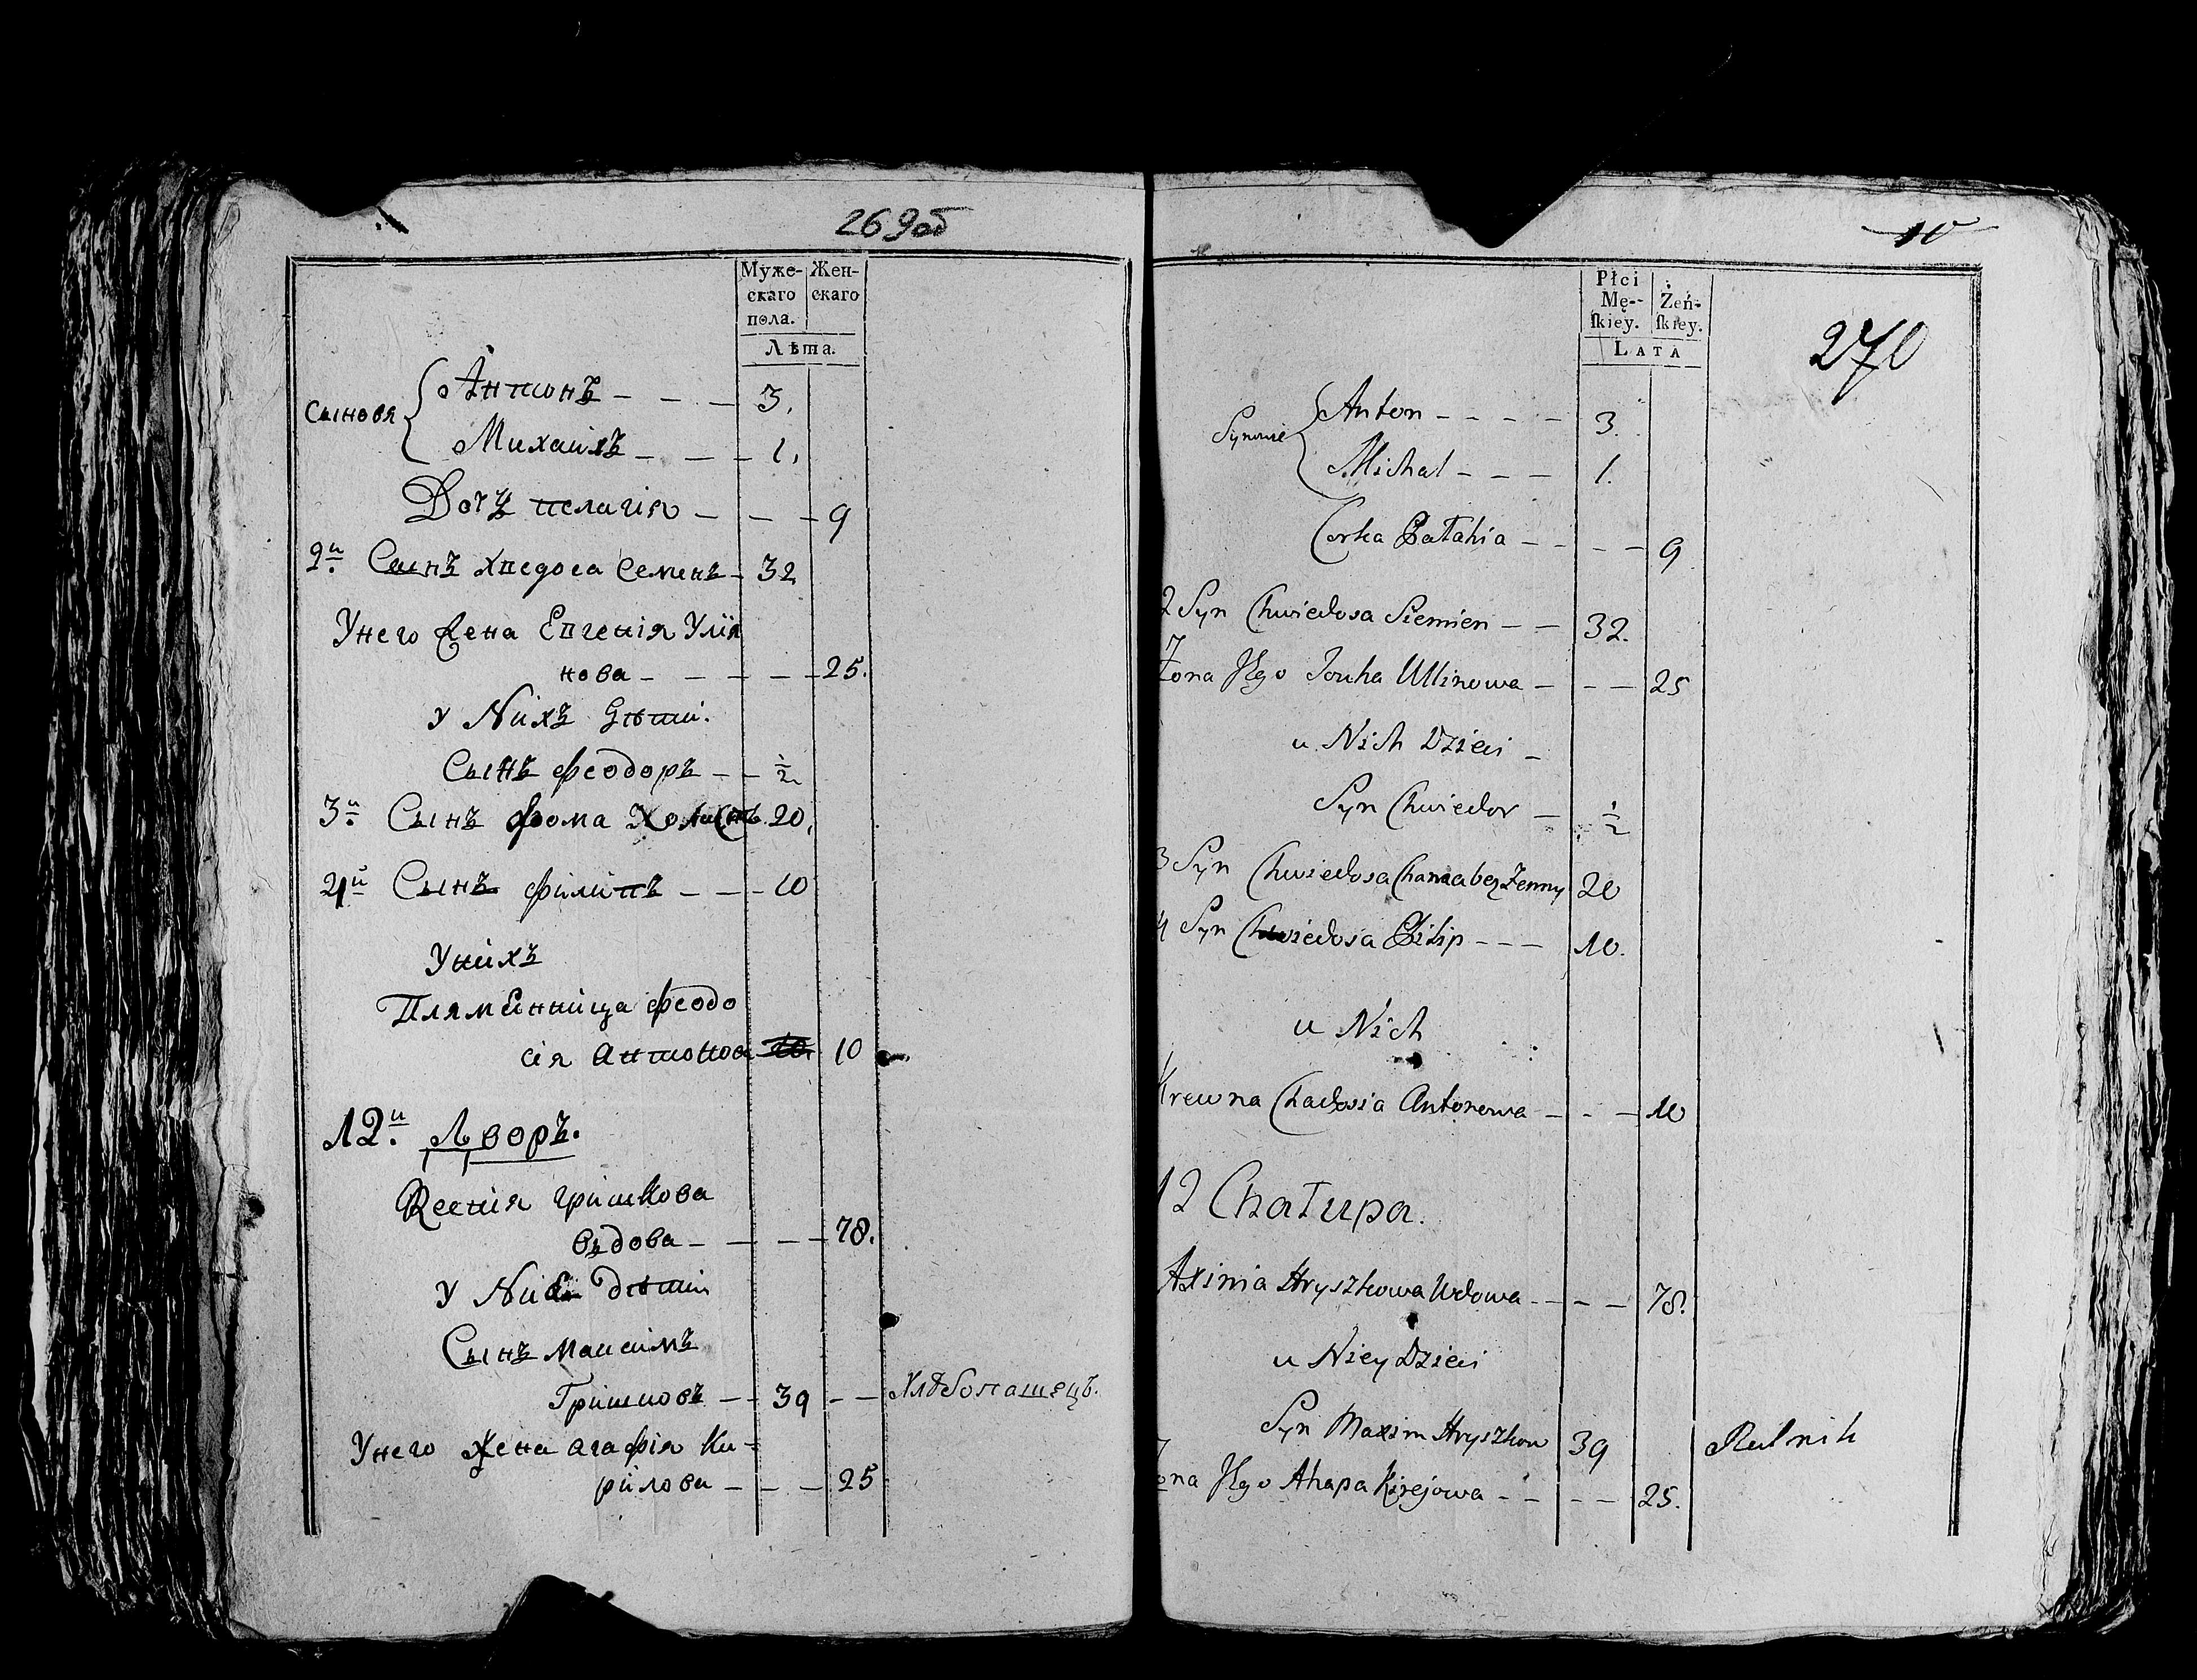 269об
Муже-
скаго
пола.
Жен-
скаго
Лѣта.
Сыновя
Антонъ - - - 3.
Михаилъ - - - 1.
Дочь пелагія - - - 9
2й Сынъ хведоса Семенъ - 32
Унего Жена Евгенія Улія
нова - - - - - 25.
У Нихъ Дѣти.
Сынъ феодоръ - - 1/2
3й Сынъ фома Холостъ 20,
4й Сынъ филипъ - - - 10
Унихъ
Пляменница феодо
сія антонова 10. 10
12й Дворъ.
Ксенія гришкова
Вдова - - - - 78.
У Ней дѣти
Сынъ максимъ
Гришковъ - - 39 - - Хлѣбопашецъ.
Унего Жена агафія Ки-
рилова - - - 25
10
Płci
Mę--
ſkiey.
Żeń-
ſkiey.
LATA
270
Synowie
Anton - - - - 3.
Michal - - - 1.
Corka Palahia - - - - 9
2 Syn Chwiedosa Siemien - - 32.
Zona Jego Jouha Ullinowa - - - 25
u Nich Dzieci -
Syn Chwiedor - 1/2
3 Syn Chwiedosa Chama bez Zenny 20
4 Syn Chwiedosa Philip - - - 10.
u Nich
Krewna Chadosia Antonowa - - - 10
12 Chałupa.
Axinia Hryszkowa Wdowa - - - - 78.
u Niey Dzieci
Syn Maxim Hryszkow 39 Rolnik
Zona Jego Ahapa Kirejowa - - - - 25.